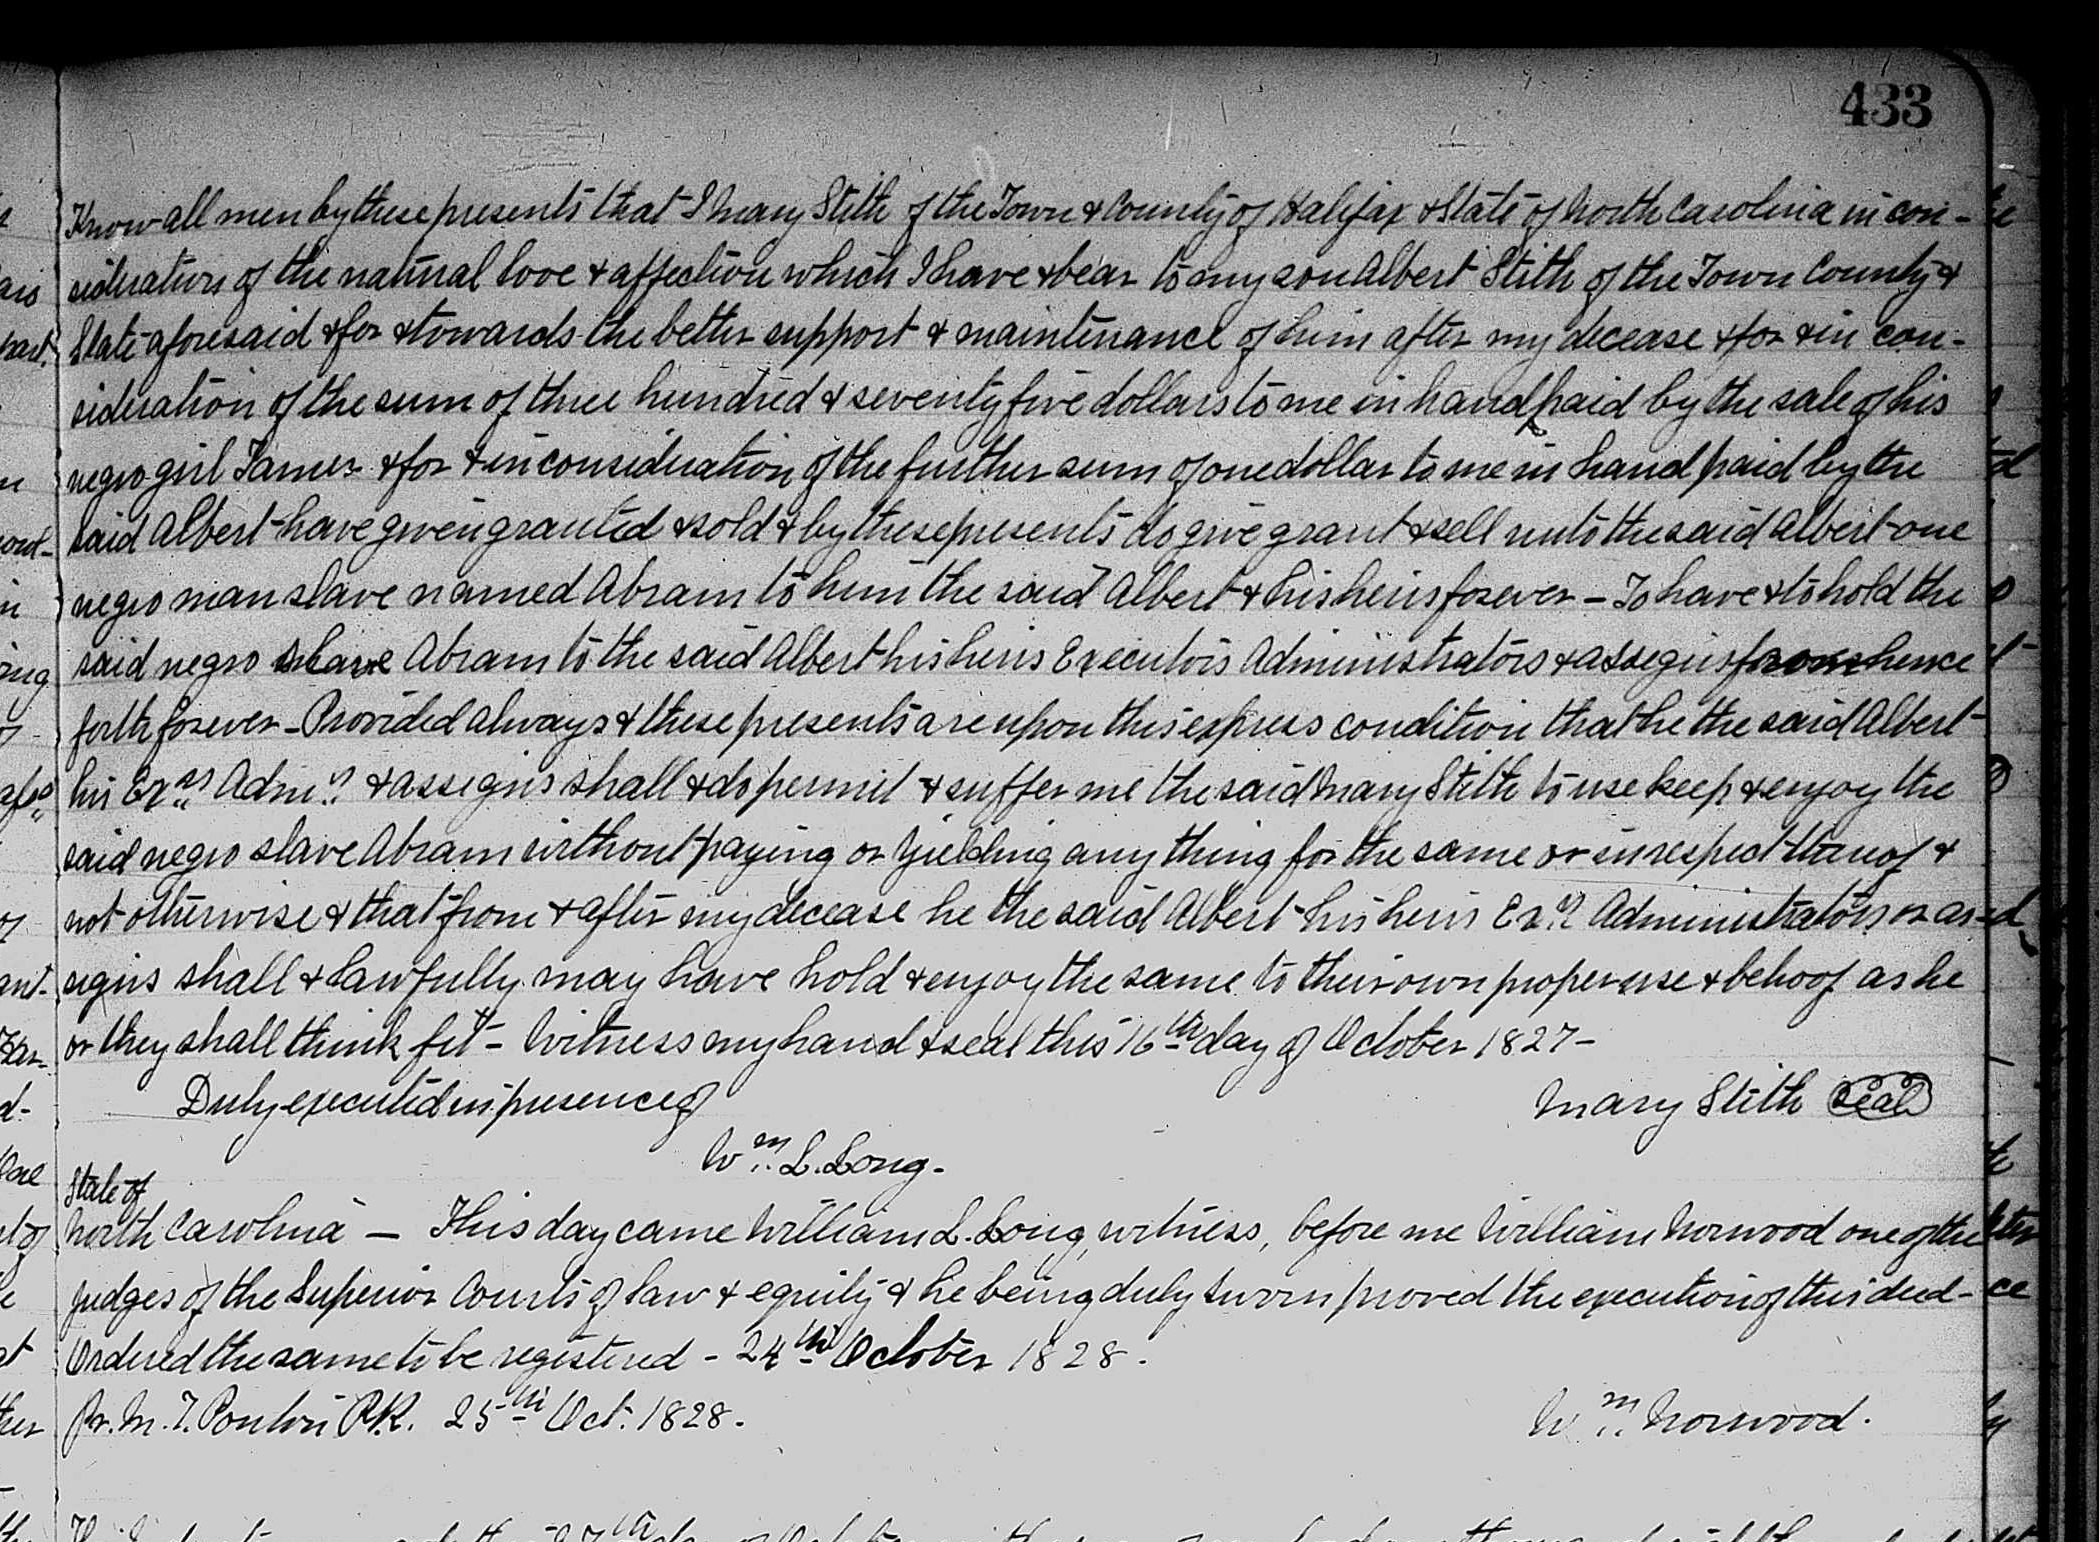 433
Know all men by these presents that I Mary Stith of the Town & County of Halifax & State of North Carolina in con-
sideration of the natural love & affection which I have & bear to my son Albert Stith of the Town County &
State aforesaid & for & towards the better support & maintenance of him after my decease & for & in con-
sideration of the sum of three hundred & seventy five dollars to me in hand paid by the sale of his
negro girl Tamer & for & in consideration of the further sum of one dollar to me in hand paid by the
said Albert have given granted & sold & by these presents do give grant & sell unto the said Albert one
negro man slave named Abram to him the said Albert & his heirs forever - To have & to hold the
said negro slave Abram to the said Albert his heirs Executors Administrators & assigns from hence
forth forever - Provided always & these presents are upon this express condition that he the said Albert
his Exrs Admrs & assigns shall & do permit & suffer me the said Mary Stith to use keep & enjoy the
said negro slave Abram without paying or yielding any thing for the same or in respect thereof &
not otherwise & that from & after my decease he the said Albert his heirs Exrs Administrators or as-
signs shall & lawfully may have hold & enjoy the same to their own proper use & behoof as he
or they shall think fit - Witness my hand & seal this 16th day of October 1827 -
Duly executed in presence of Mary Stith Seal
Wm. L. Long.
State of
North Carolina - This day came William L. Long, witness, before me William Norwood one of the
judges of the Superior Courts of law & equity & he being duly sworn proved the execution of this deed -
Ordered the same to be registered - 24th October 1828.
Pr. M. T. Ponton P.R. 25th Oct. 1828. Wm. Norwood.